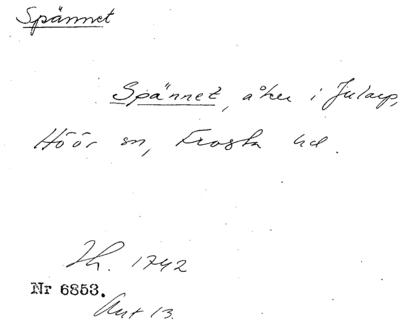 Spännet
Spännet, åker i Jularp,
Höör sn, Frosta hd.
Th. 1742
Nr 6853.
Akt 13.